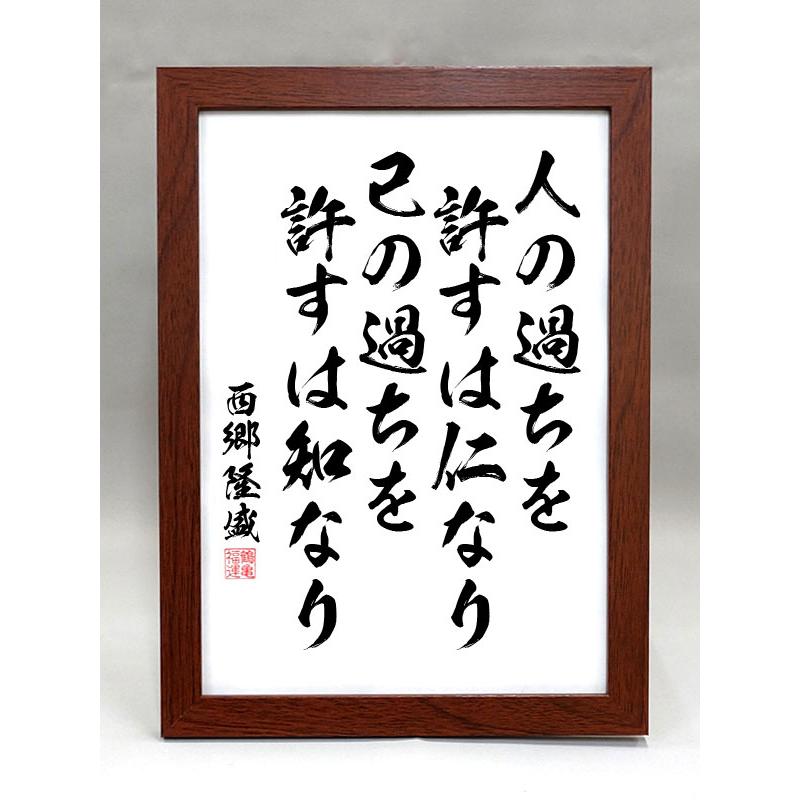 人の過ちを
許すは仁なり
己の過ちを
許すは知なり
西郷隆盛
鶴亀
福運